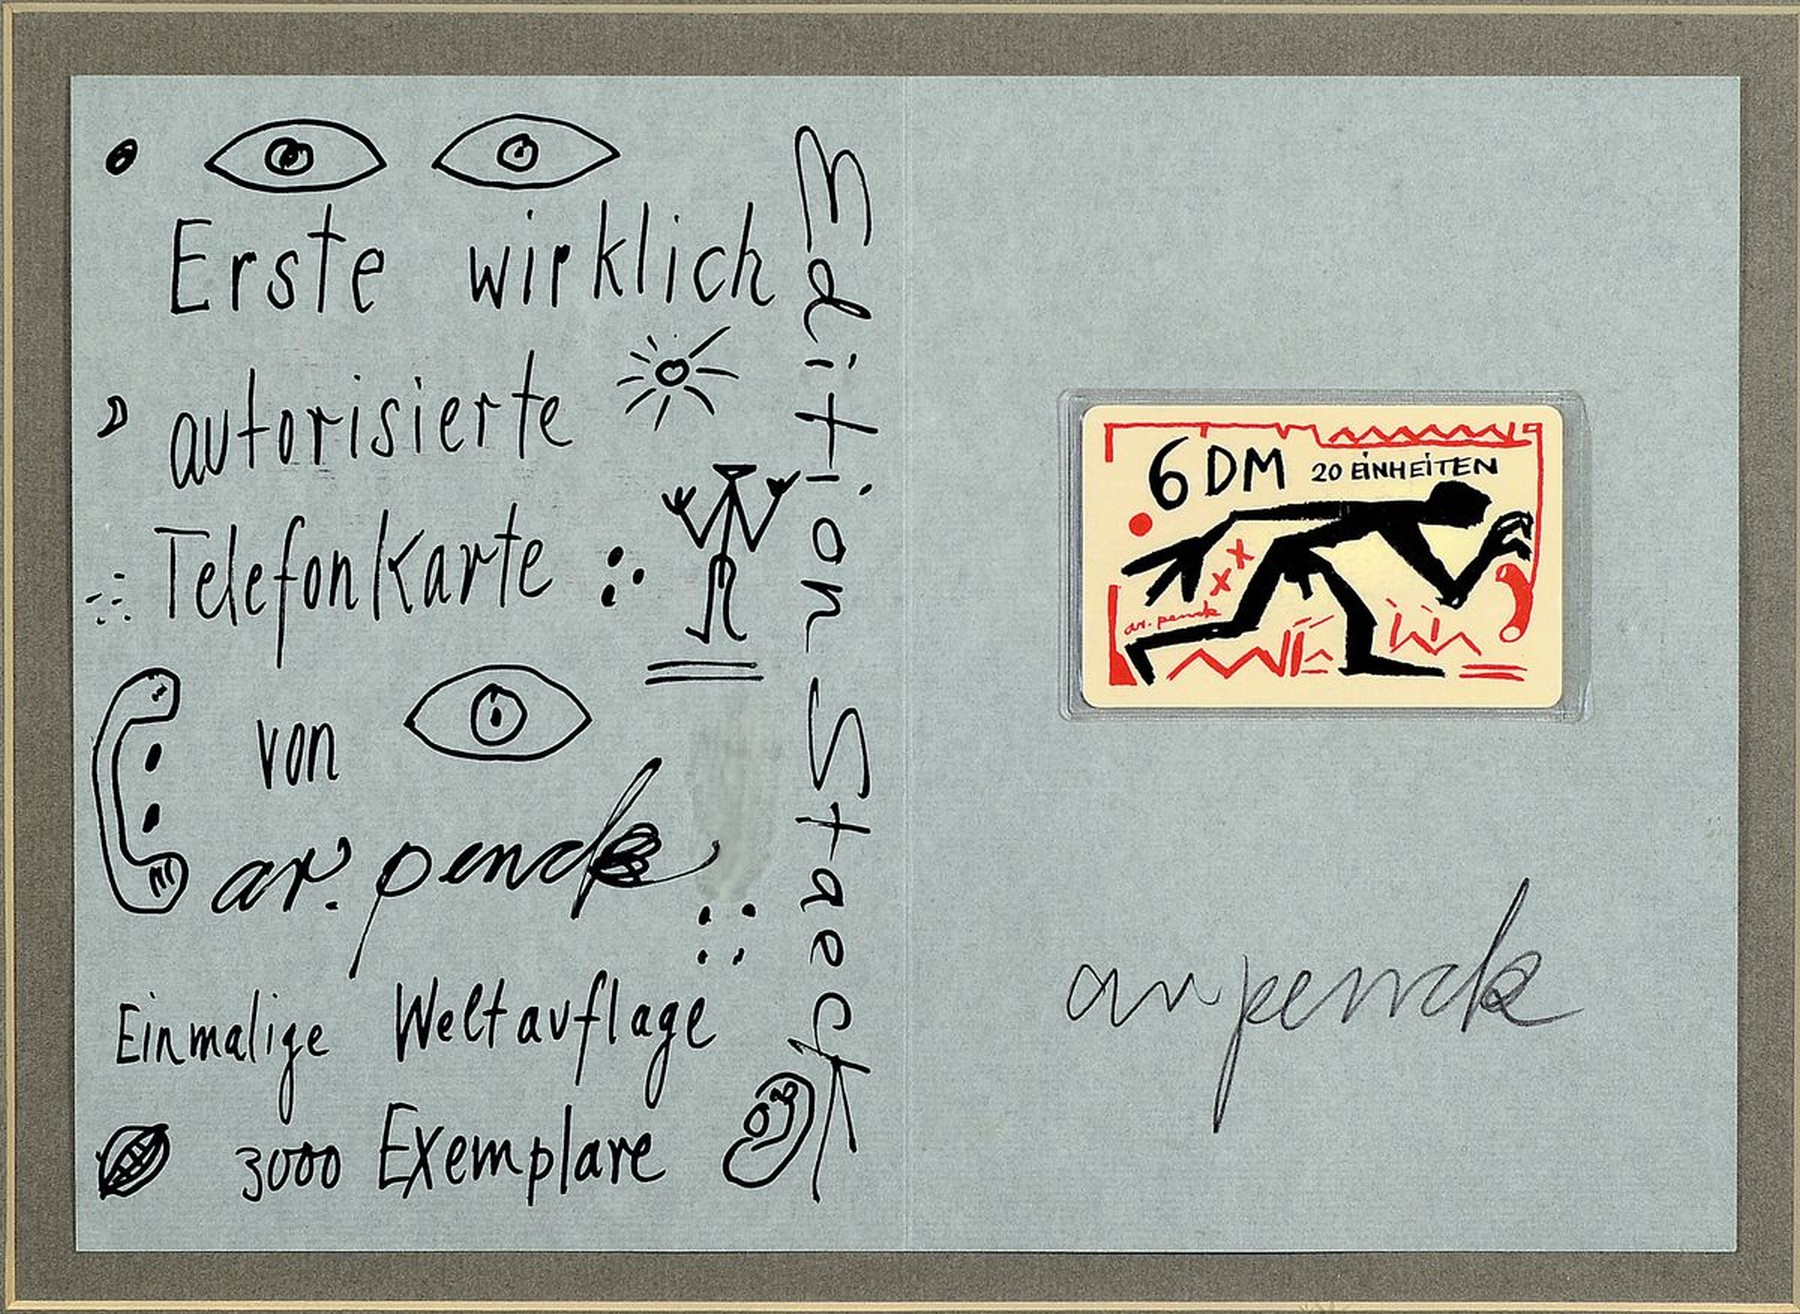 Erste wirklich
autorisierte
Telefonkarte
von
ar. penck
Einmalige Weltauflage
3000 Exemplare
Edition Staeck
6 DM 20 EINHEITEN
ar. penck
ar penck